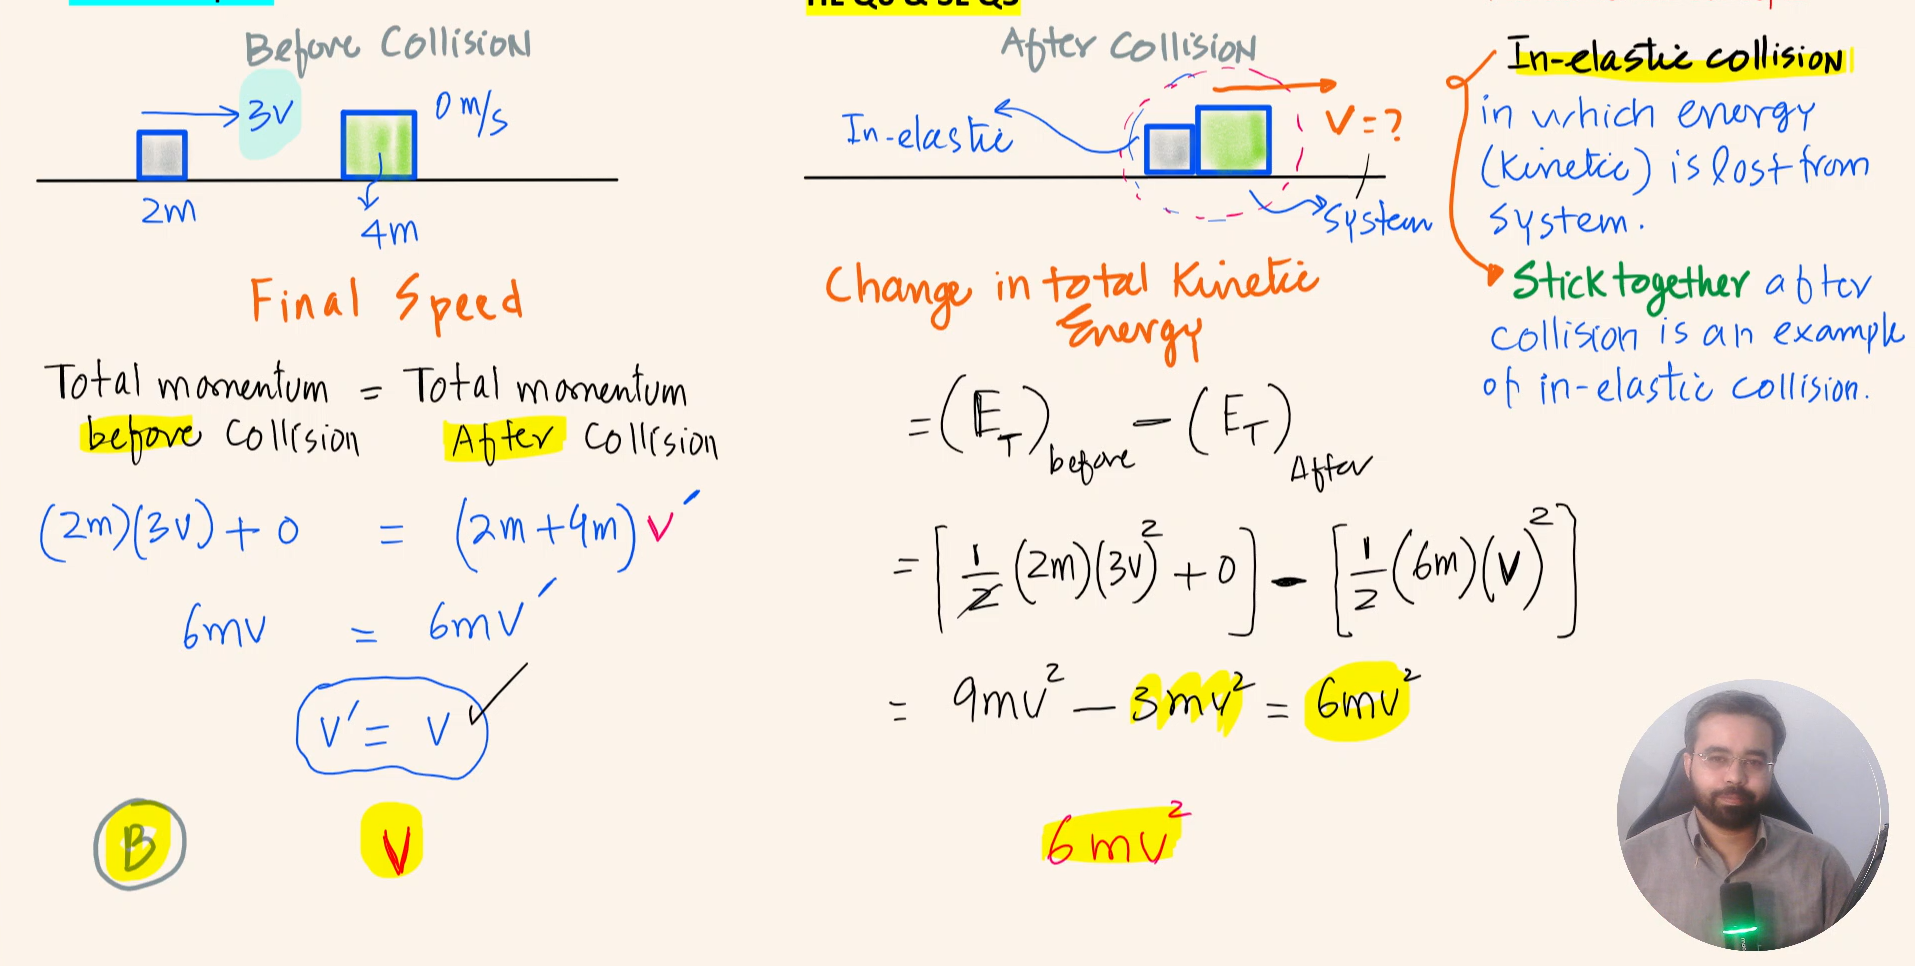 Before Collision
3v
0 m/s
2m
4m
Final Speed
Total momentum = Total momentum
before Collision After Collision
(2m)(3v) + 0 = (2m+4m) v′
6mv = 6mv′
v′ = v
B
v
After Collision
In-elastic
V = ?
System
Change in total Kinetic
Energy
= (E_T)before − (E_T)After
= [1/2 (2m)(3v)² + 0] − [1/2 (6m)(v)²]
= 9mv² − 3mv² = 6mv²
6mv²
In-elastic collision
in which energy
(kinetic) is lost from
system.
Stick together after
collision is an example
of in-elastic collision.